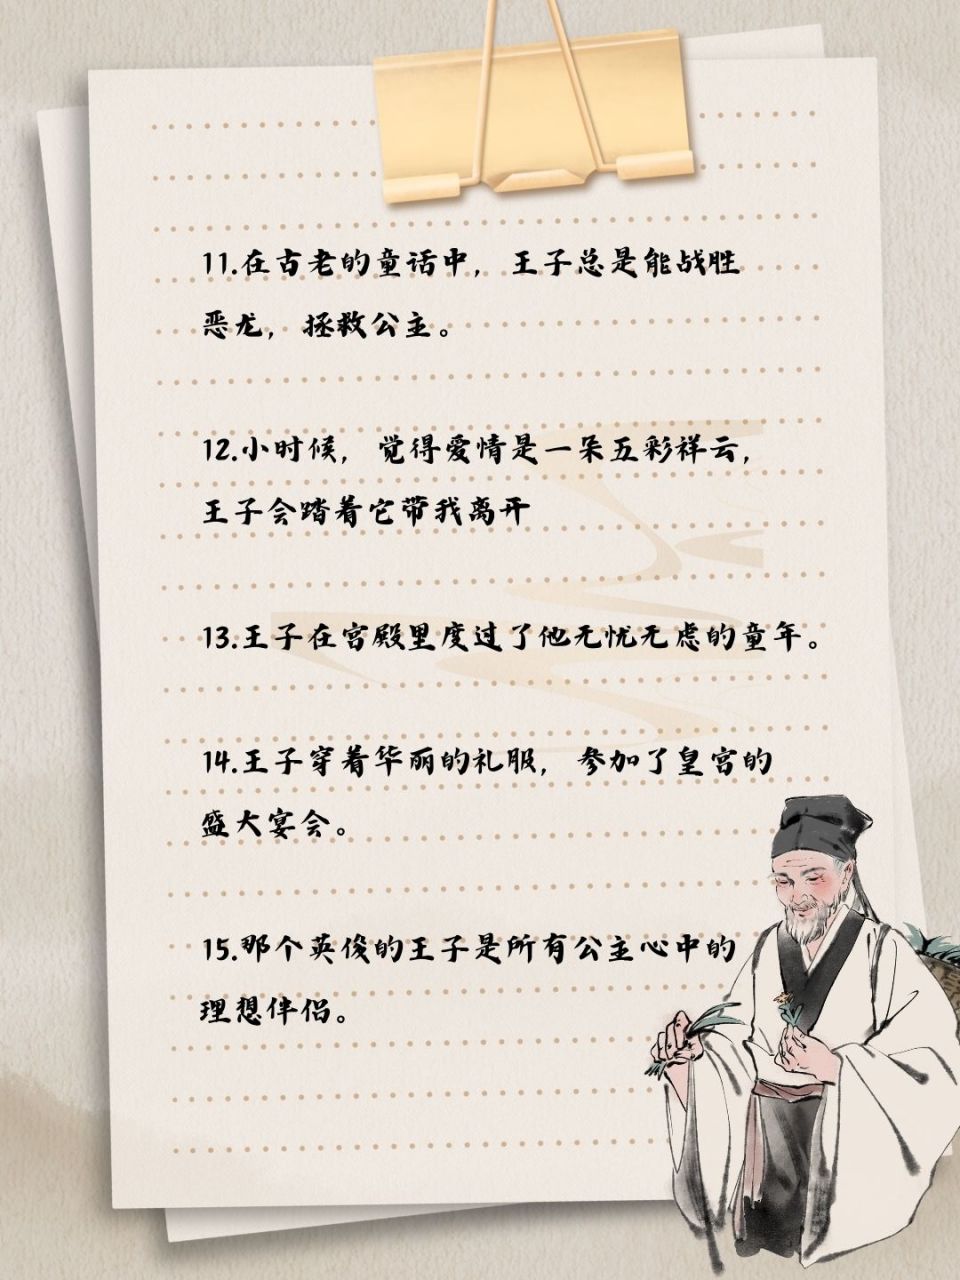 11.在古老的童话中，王子总是能战胜
恶龙，拯救公主。
12.小时候，觉得爱情是一朵五彩祥云，
王子会踏着它带我离开
13.王子在宫殿里度过了他无忧无虑的童年。
14.王子穿着华丽的礼服，参加了皇宫的
盛大宴会。
15.那个英俊的王子是所有公主心中的
理想伴侣。